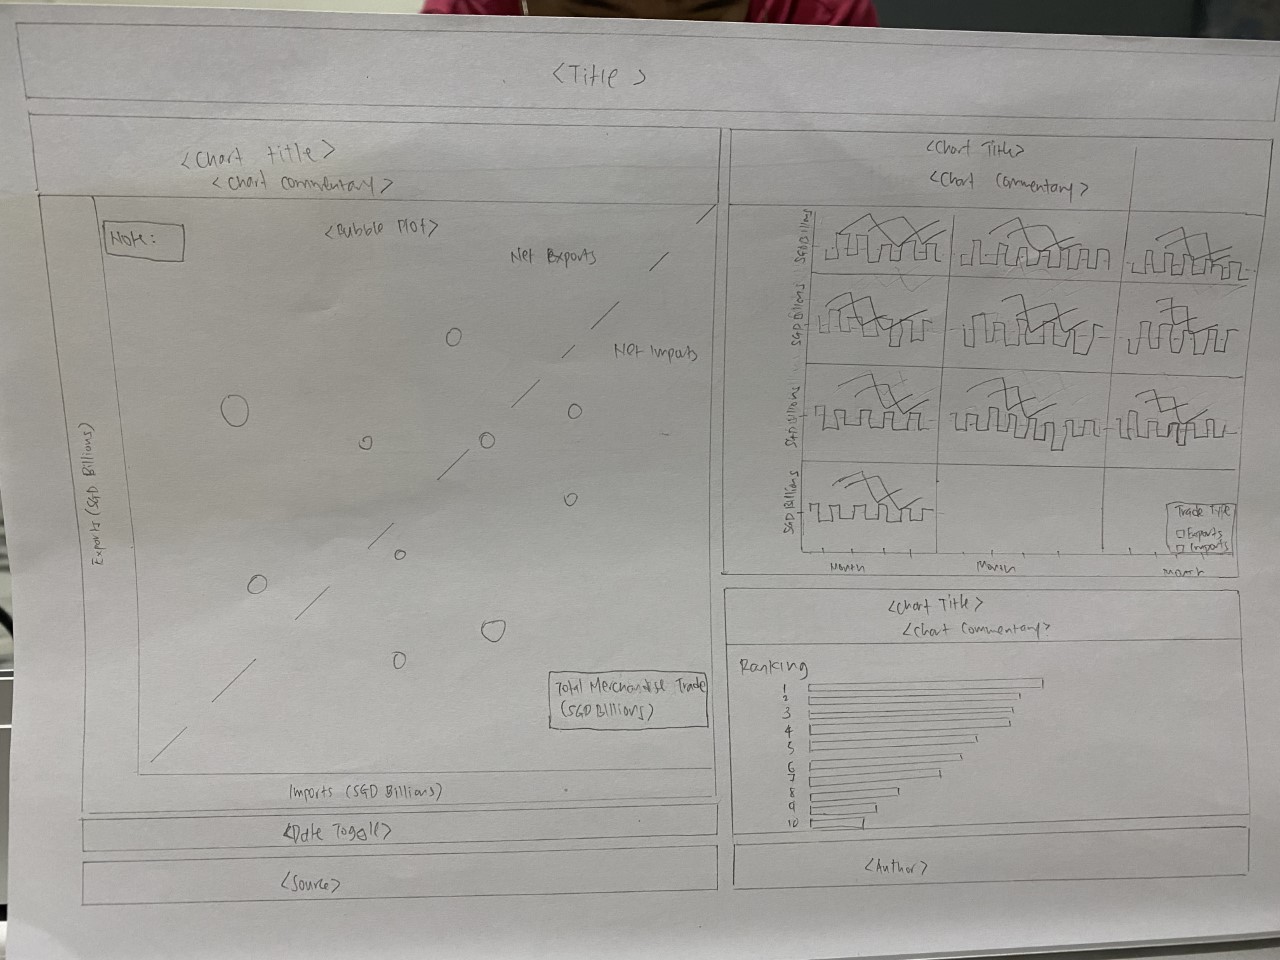 <Title>
<Chart Title>
<Chart Commentary>
Note:
<Bubble Plot>
Net Exports
Net Imports
Exports (SGD Billions)
Total Merchandise Trade
(SGD Billions)
Imports (SGD Billions)
<Date Toggle>
<Source>
<Chart Title>
<Chart Commentary>
SGD Billions
SGD Billions
SGD Billions
SGD Billions
Trade Type
Exports
Imports
Month
Month
Month
<Chart Title>
<Chart Commentary>
Ranking
1
2
3
4
5
6
7
8
9
10
<Author>